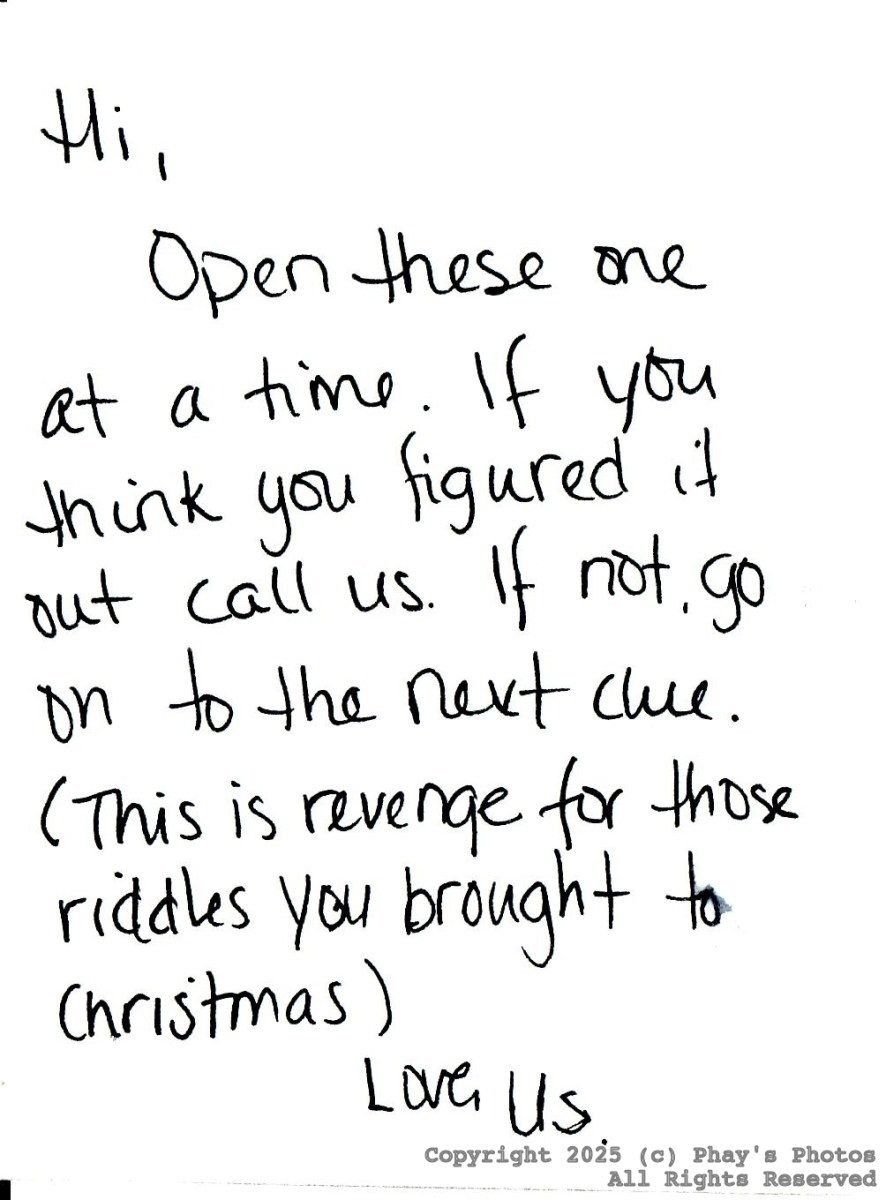 Hi,
Open these one
at a time. If you
think you figured it
out call us. If not, go
on to the next clue.
(This is revenge for those
riddles you brought to
Christmas)
Love, Us.
Copyright 2025 (c) Phay's Photos
All Rights Reserved